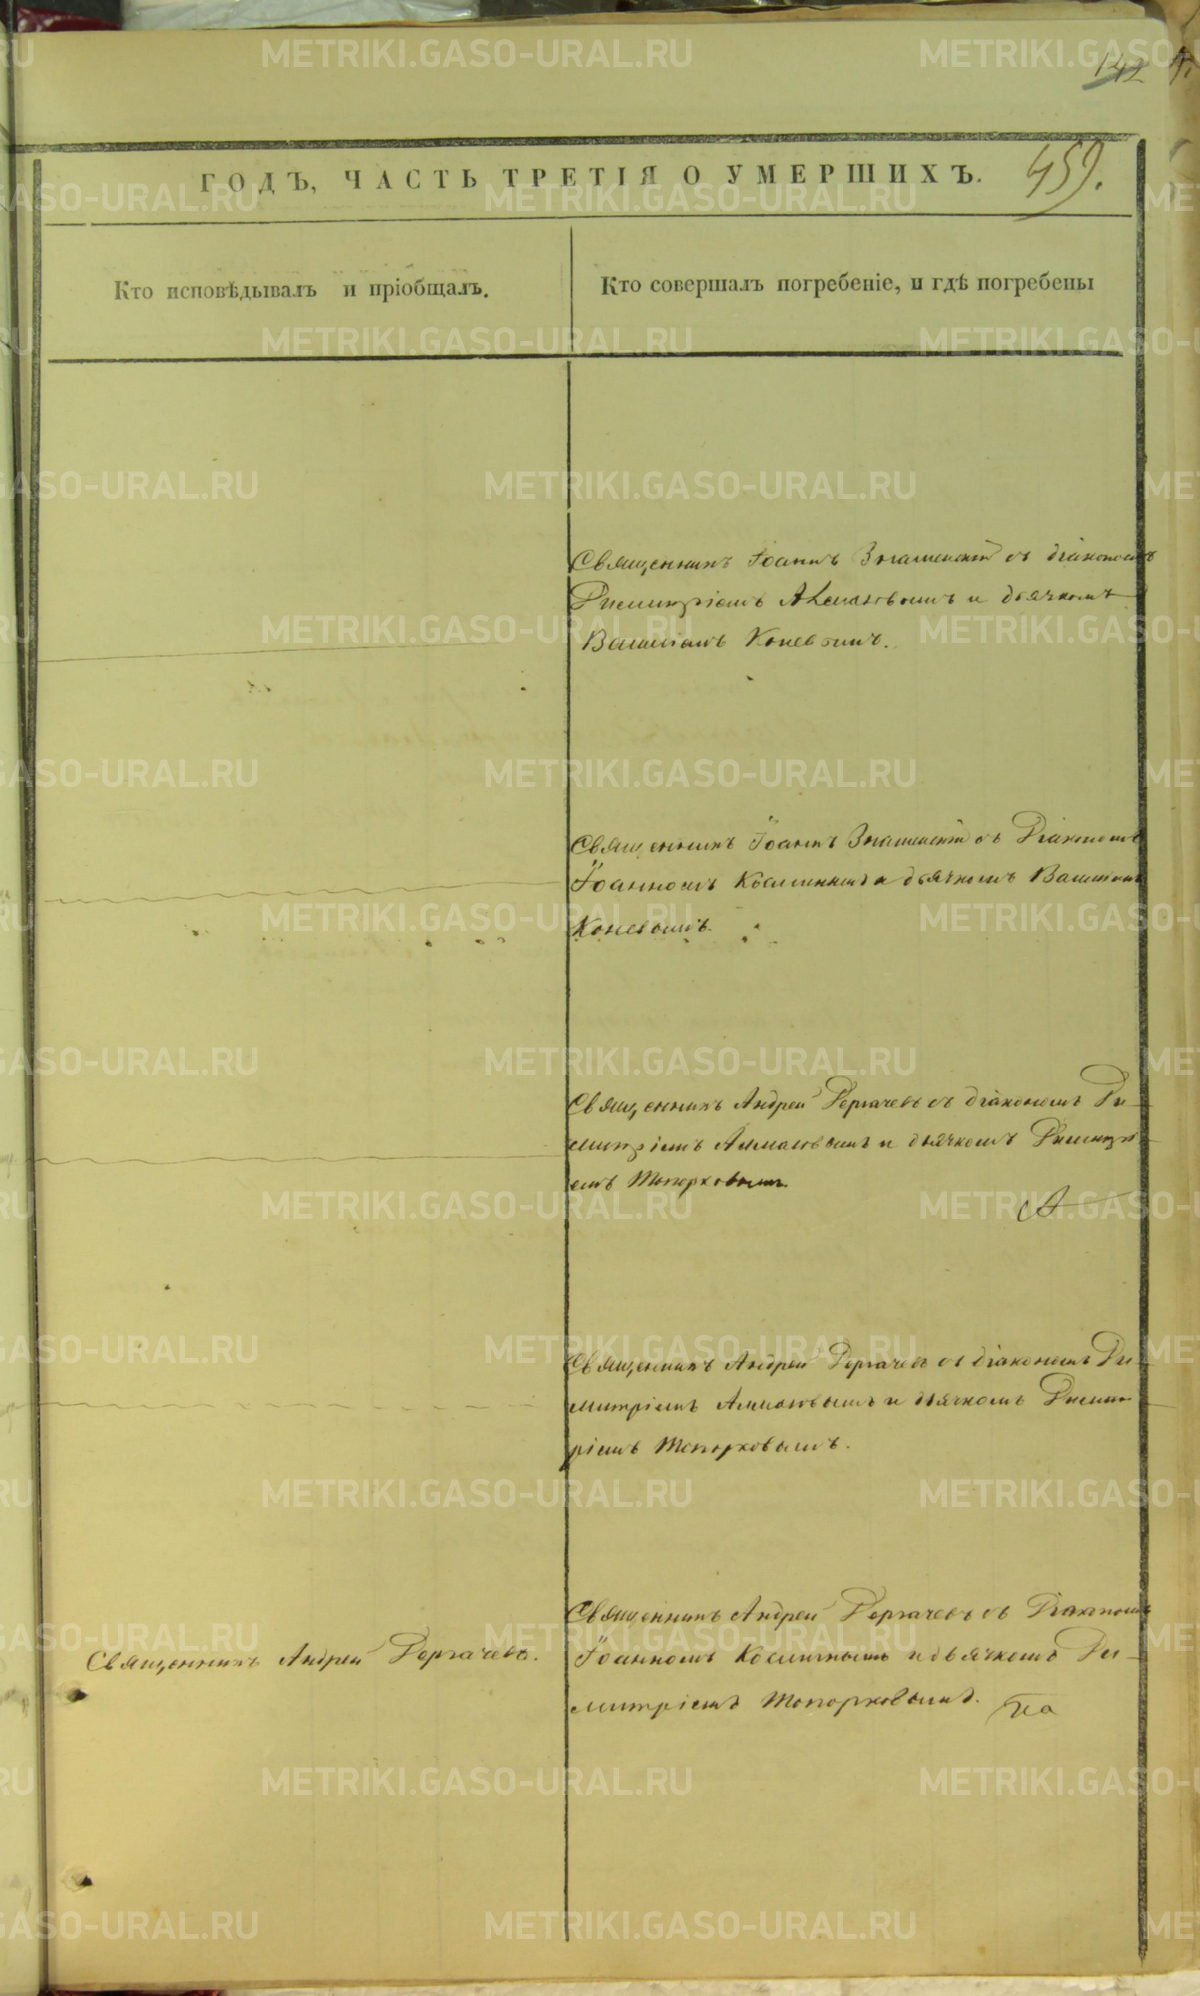 142
459.
ГОДЪ, ЧАСТЬ ТРЕТІЯ О УМЕРШИХЪ.
Кто исповѣдывалъ и пріобщалъ.
Кто совершалъ погребеніе, и гдѣ погребены
Священникъ Іоаннъ Знаменскій съ діакономъ
Димитріемъ и дьячкомъ
Василіемъ Коневымъ.
Священникъ Іоаннъ Знаменскій съ Діакономъ
Іоанномъ и дьячкомъ Василіемъ
Коневымъ.
Священникъ Андрей Дергачевъ съ діакономъ Ди-
митріемъ и дьячкомъ Димитрі-
емъ Топорковымъ
Священникъ Андрей Дергачевъ съ діакономъ Ди-
митріемъ и дьячкомъ Димит-
ріемъ Топорковымъ.
Священникъ Андрей Дергачевъ.
Священникъ Андрей Дергачевъ съ Діакономъ
Іоанномъ и дьячкомъ Ди-
митріемъ Топорковымъ.
METRIKI.GASO-URAL.RU